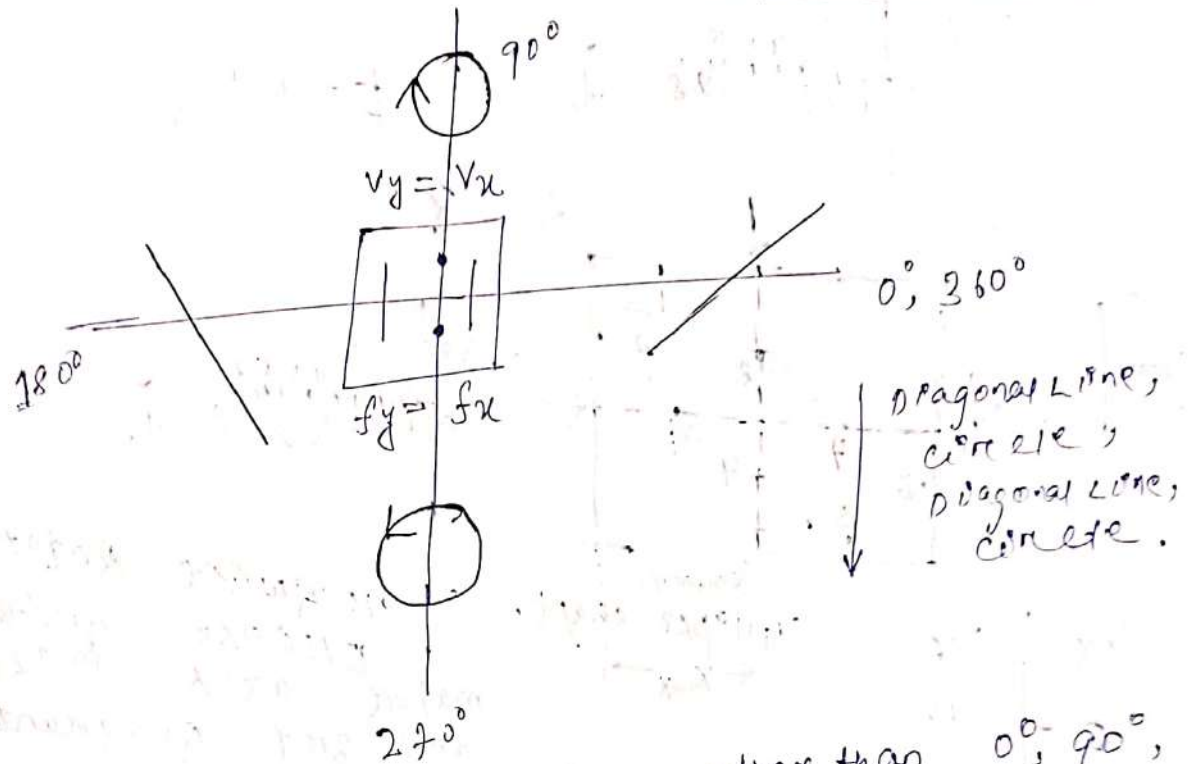 90°
Vy = Vx
0°, 360°
180°
fy = fx
Diagonal Line,
circle,
Diagonal Line,
circle.
270°
than 0°, 90°,